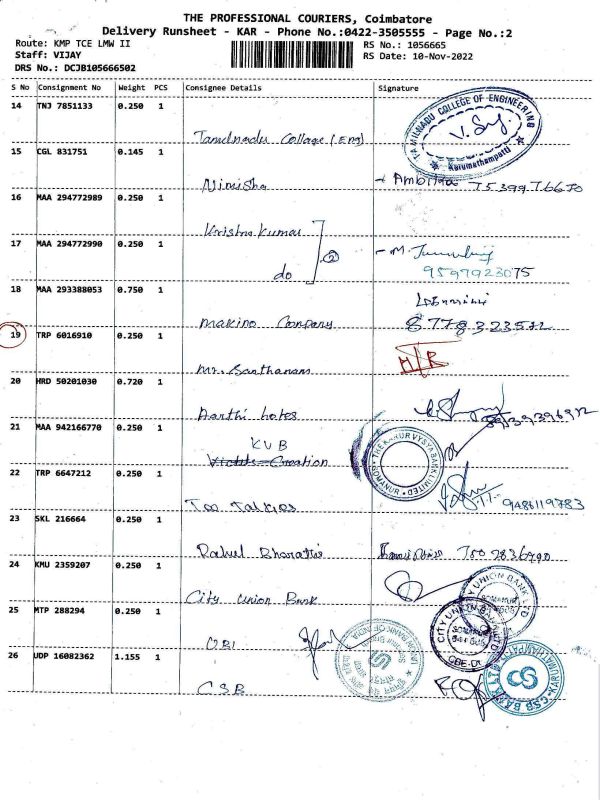 THE PROFESSIONAL COURIERS, Coimbatore
Delivery Runsheet - KAR - Phone No.:0422-3505555 - Page No.:2
Route: KMP TCE LMW II
RS No.: 1056665
Staff: VIJAY
RS Date: 10-Nov-2022
DRS No.: DCJB105666502
S No Consignment No Weight PCS Consignee Details Signature
14 TNJ 7851133 0.250 1
TAMILNADU COLLEGE OF ENGINEERING
Karumathampatti
Tamilnadu College (Eng)
15 CGL 831751 0.145 1
Nimisha
16 MAA 294772989 0.250 1
Krishna Kumar
17 MAA 294772990 0.250 1
do
9597923075
18 MAA 293388053 0.750 1
Makino Company
19 TRP 6016910 0.250 1
Mr. Santhanam
20 HRD 50201030 0.720 1
Aarthi
21 MAA 942166770 0.250 1
KVB
Creation
THE KARUR VYSYA BANK LIMITED
22 TRP 6647212 0.250 1
Too Talkies
9486119783
23 SKL 216664 0.250 1
Rahul Bharathi
24 KMU 2359207 0.250 1
City Union Bank
CITY UNION BANK LTD
25 MTP 288294 0.250 1
CITY UNION BANK LTD
26 UDP 16082362 1.155 1
CSB
CSB BANK LTD